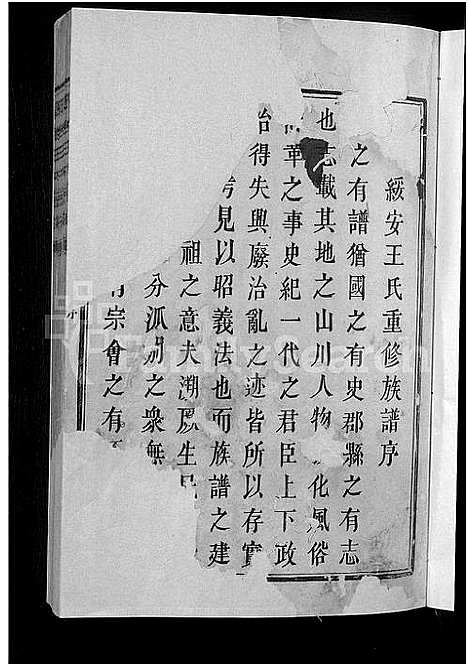 綏安王氏重修族譜序
之有譜猶國之有史郡縣之有志
也志載其地之山川人物 化風俗
革之事史紀一代之君臣上下政
治得失興廢治亂之迹皆所以存實
見以昭義法也而族譜之建
祖之意夫溯厥生
分派別之衆無
宗會之有
FamilySearch